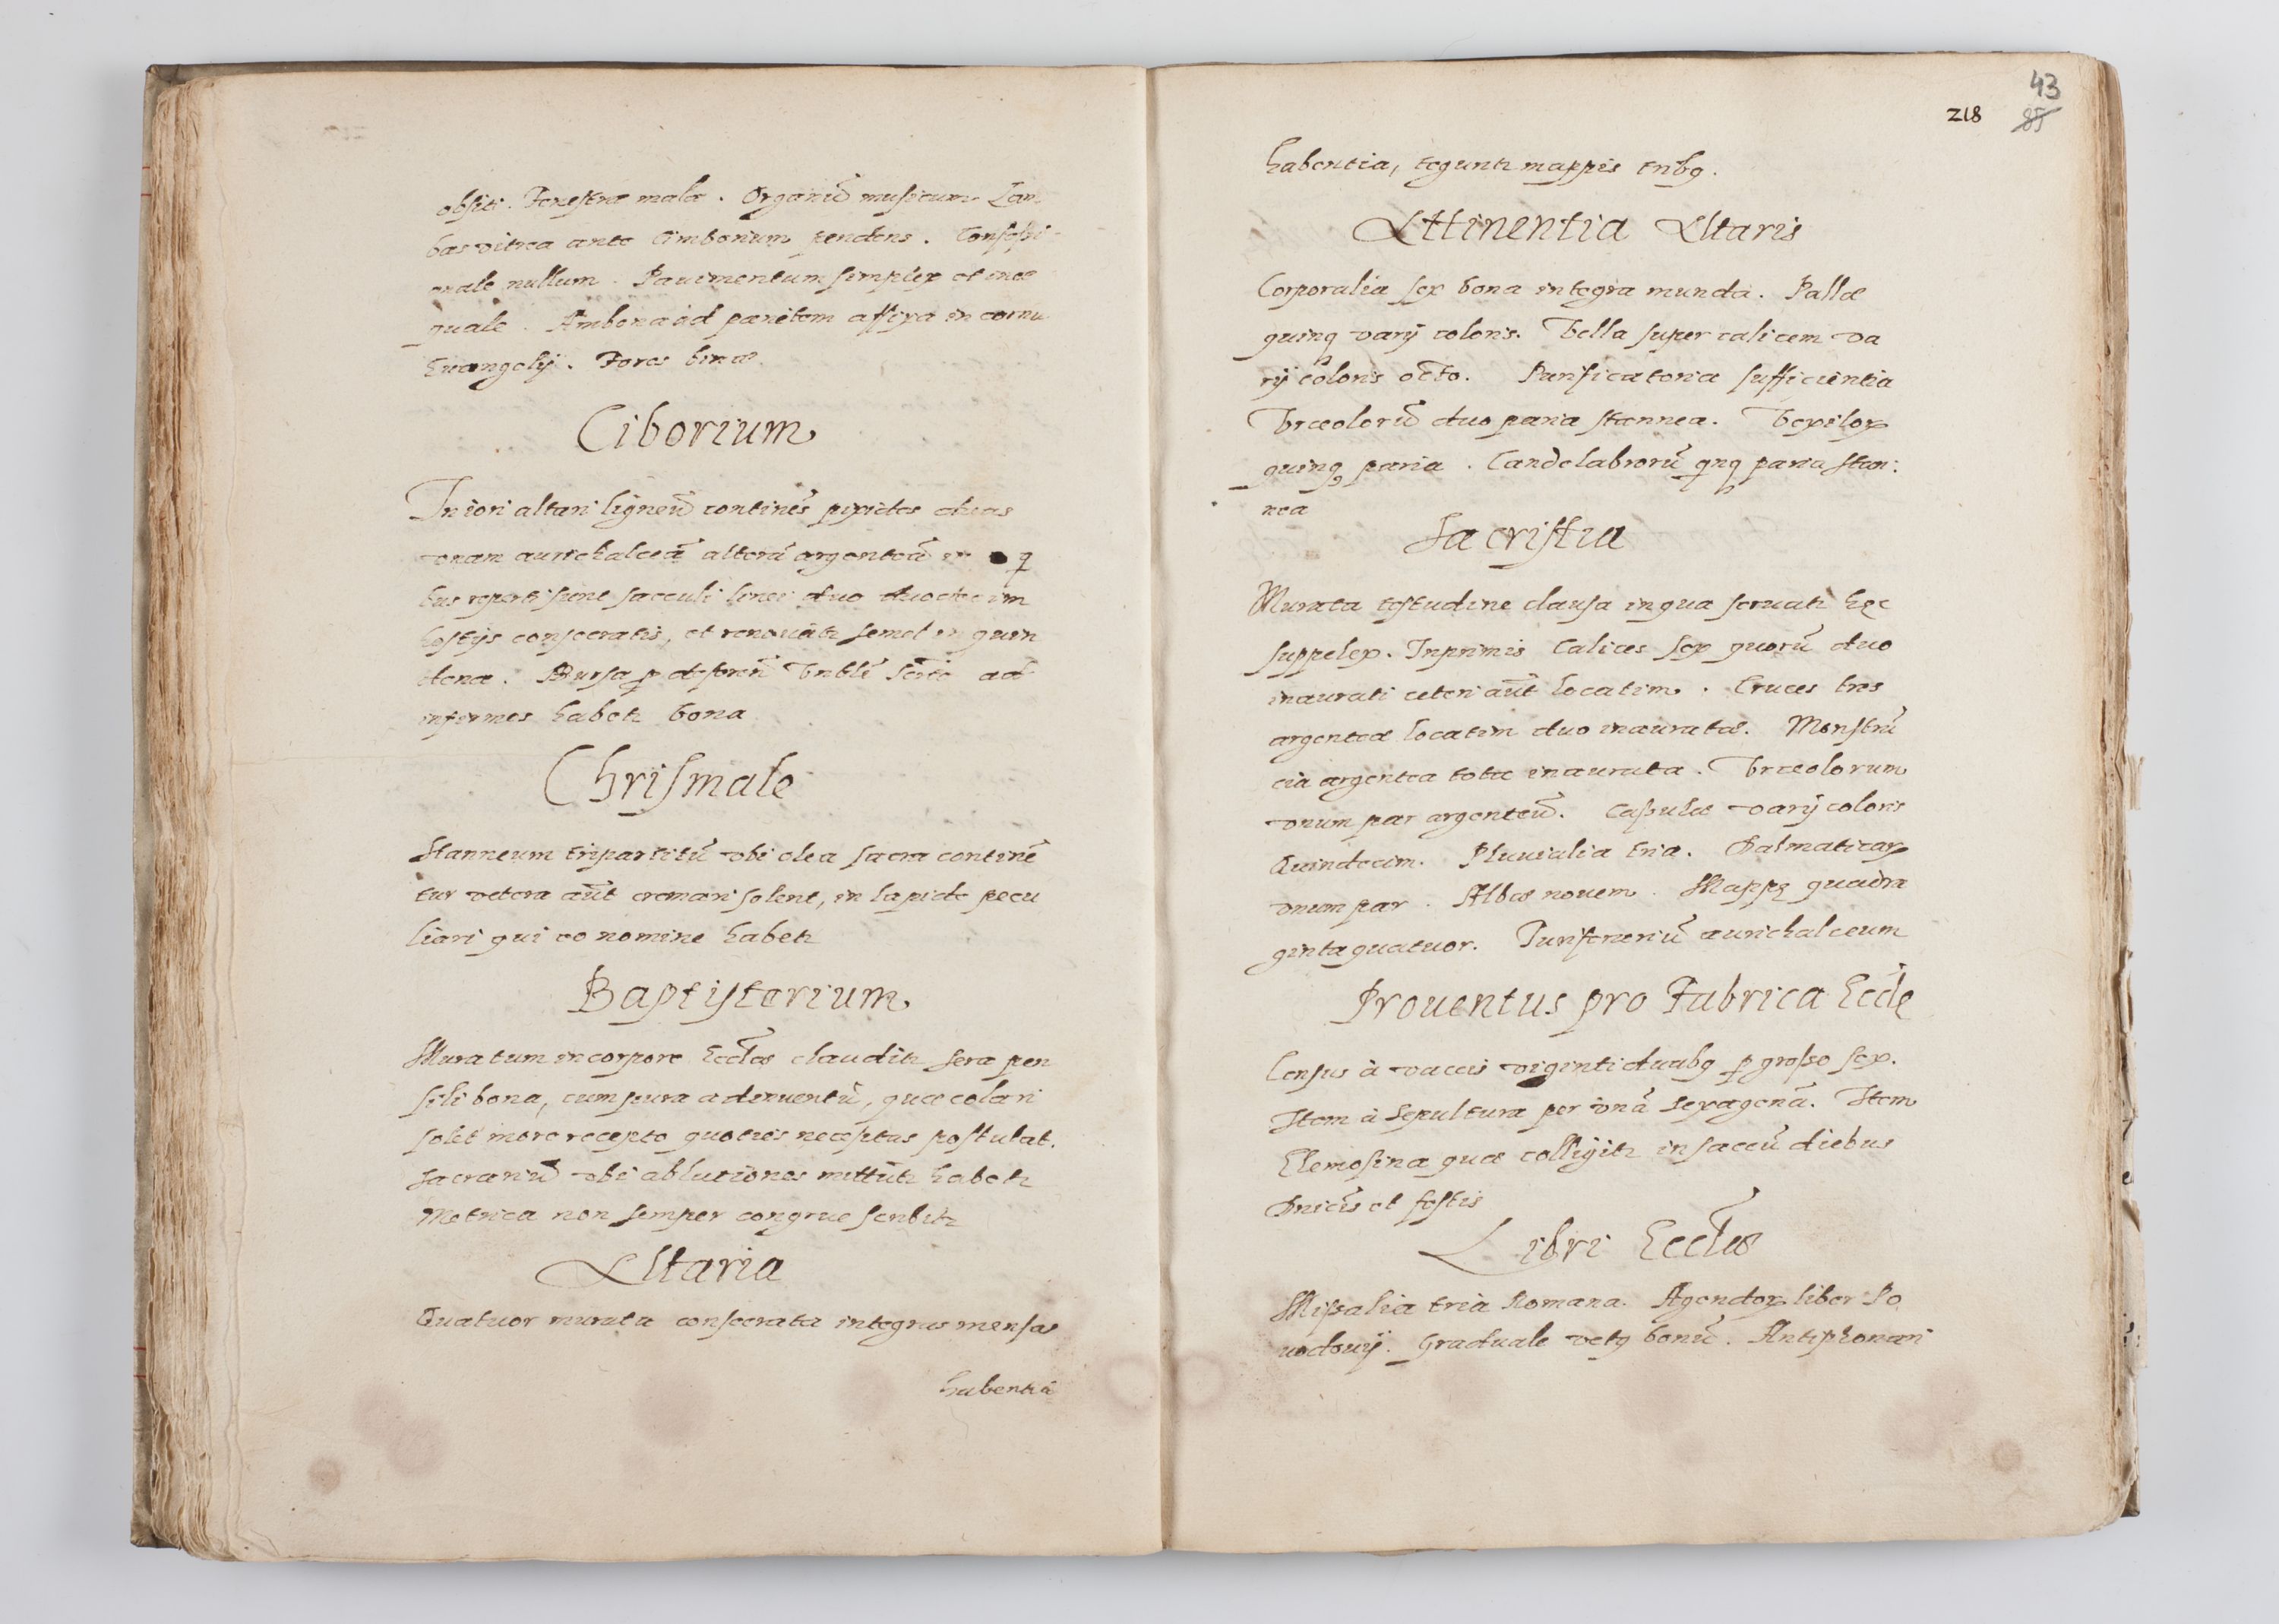 obsiti. Fenestræ malæ. Organũ musicum. Lam
bas vitrea ante Cimborium pendens. Confessi
onale nullum. Pauimentum simplex et inæ
quale. Ambona ad parietem affixa in cornu
Euangelij. Fores binæ.
Ciborium
In iori altari ligneũ continẽs pixides duas
vnam aurichalceã alterã argenteã in q
bus reperti sunt sacculi linei duo duodecim
hostijs consecratis, et renouatr semel in quin
dena. Bursa p deferen̄ Vnblẽ Scto ad
infirmos habetr bona
Chrismale
Stanneum tripartitũ vbi olea sacra continẽ
tur vetera aũt cremari solent, in lapide pecu
liari qui eo nomine habetr
Baptisterium
Muratum in corpore Eccłæ clauditr sera pen
sili bona, cum pura ad inuentũ, quæ colari
solet more recepto quoties necessitas postulat.
Sacrariũ vbi ablutiones mittũtr habetr
Metrica non semper congrue scribitr
Altaria
Quatuor murata consecrata integras mensas
habentia
43
218 85
habentia, teguntr mappis tribꝫ.
Attinentia Altaris
Corporalia sex bona integra munda. Pallæ
quinqꝫ varij coloris. Vella super calicem va
rij coloris octo. Purificatoria sufficientia
Vrceolorũ duo paria stannea. Vexiloꝝ
quinqꝫ paria. Candelabrorũ qnqꝫ paria stan:
nea
Sacristia
Murata testudine clausa in qua seruatr hęc
suppelex. Inprimis Calices sex quorũ duo
inaurati ceteri aũt locatim. Cruces tres
argenteæ locatim duo inauratæ. Monstrã
cia argentea tota inaurata. Vrceolorum
vnum par argenteũ. Casulæ varij coloris
Quindecim. Pluuialia tria. Dalmaticaꝝ
vnum par. Albæ nouem. Mappę quadra
ginta quatuor. Turiferariũ aurichalceum
Prouentus pro Fabrica Eccłę
Census à vaccis viginti duabꝫ p grosso sex.
Item à Sepultura per vnã sexagenã. Item
Elemosina quæ colligitr in saccũ diebus
Dnicis et festis
Libri Eccłæ
Missalia tria Romana. Agendoꝝ liber Po
uodouij. Graduale vetꝫ bonũ. Antiphonari